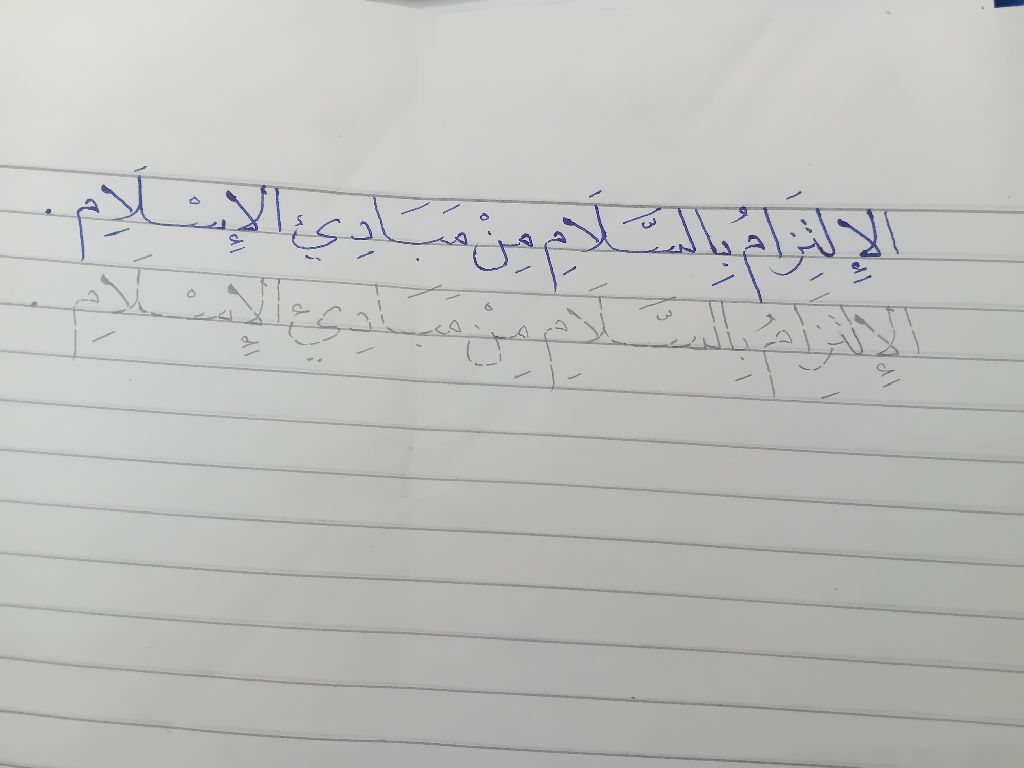 الإِلتِزَامُ بِالسَّلَامِ مِنْ مَبَادِئِ الإِسْلَامِ .
الإِلتِزَامُ بِالسَّلَامِ مِنْ مَبَادِئِ الإِسْلَامِ .